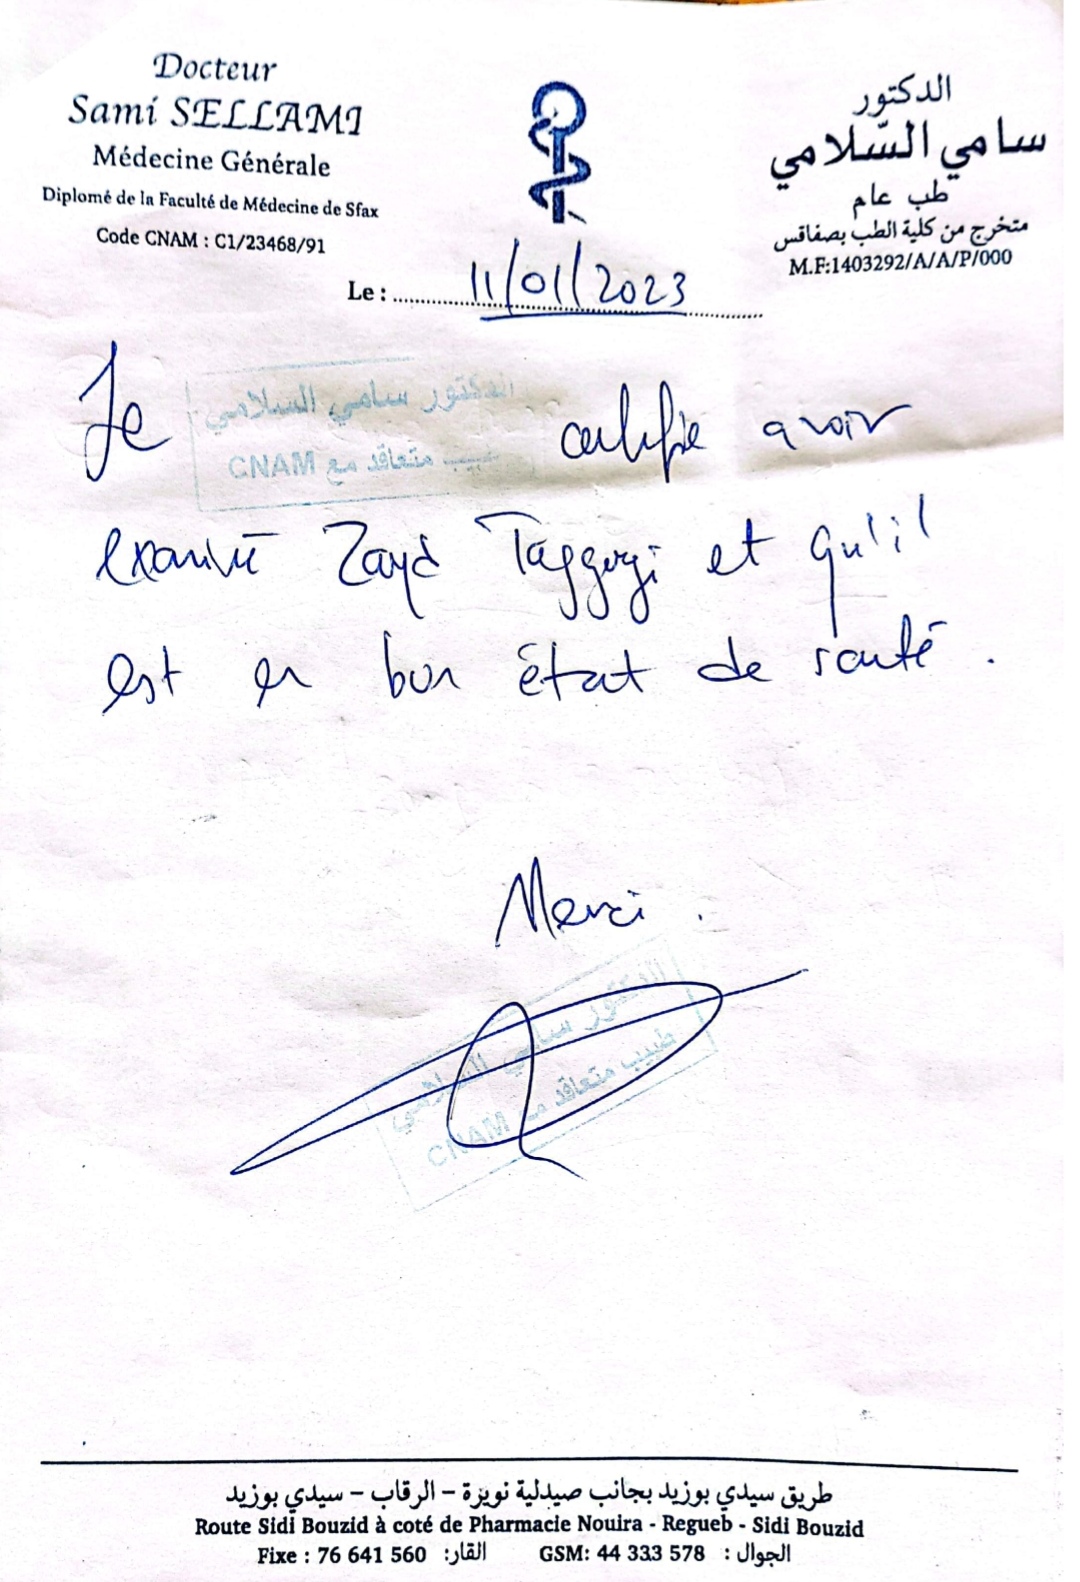 Docteur
Sami SELLAMI
Médecine Générale
Diplomé de la Faculté de Médecine de Sfax
Code CNAM : C1/23468/91
الدكتور
سامي السّلامي
طب عام
متخرج من كلية الطب بصفاقس
M.F:1403292/A/A/P/000
Le : 11/01/2023
الدكتور سامي السلامي
طبيب متعاقد مع CNAM
Je certifie avoir
examiné Zayd Taggugi et qu'il
est en bon état de santé .
Merci .
الدكتور سامي السلامي
طبيب متعاقد مع CNAM
طريق سيدي بوزيد بجانب صيدلية نويرة – الرقاب – سيدي بوزيد
Route Sidi Bouzid à coté de Pharmacie Nouira - Regueb - Sidi Bouzid
Fixe : 76 641 560 القار: GSM: 44 333 578 الجوال :